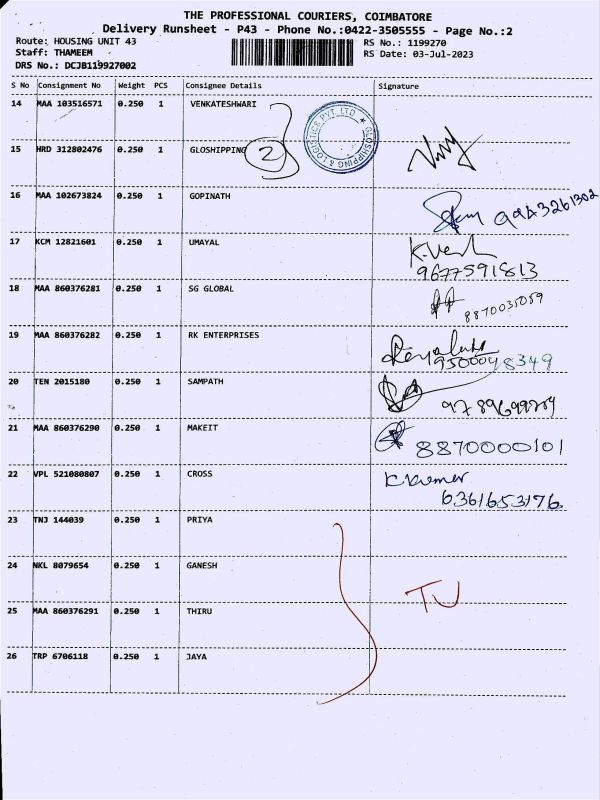 THE PROFESSIONAL COURIERS, COIMBATORE
Delivery Runsheet - P43 - Phone No.:0422-3505555 - Page No.:2
Route: HOUSING UNIT 43
Staff: THAMEEM
DRS No.: DCJB119927002
RS No.: 1199270
RS Date: 03-Jul-2023
S No Consignment No Weight PCS Consignee Details Signature
14 MAA 103516571 0.250 1 VENKATESHWARI
GLOSHIPPING & LOGISTICS PVT LTD
15 HRD 312802476 0.250 1 GLOSHIPPING 2
16 MAA 102673824 0.250 1 GOPINATH
9943261302
17 KCM 12821601 0.250 1 UMAYAL
9677591813
18 MAA 860376281 0.250 1 SG GLOBAL
8870035059
19 MAA 860376282 0.250 1 RK ENTERPRISES
9500048349
20 TEN 2015180 0.250 1 SAMPATH
21 MAA 860376290 0.250 1 MAKEIT
8870000101
22 VPL 521080807 0.250 1 CROSS
6361653176
23 TNJ 144039 0.250 1 PRIYA
24 NKL 8079654 0.250 1 GANESH
TU
25 MAA 860376291 0.250 1 THIRU
26 TRP 6706118 0.250 1 JAYA